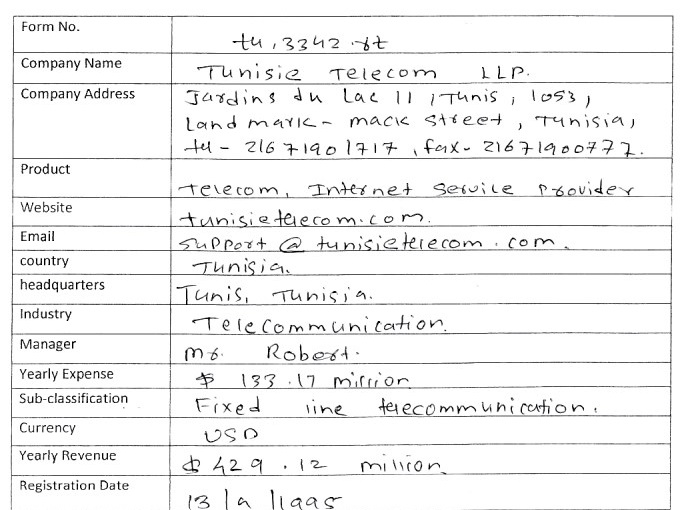 Form No. tu,3342.rt
Company Name Tunisie Telecom LLP.
Company Address Jardins du Lac II, Tunis, 1053,
Land mark - mack street, Tunisia,
tel - 216 71901717, fax - 21671900777.
Product Telecom, Internet Service Provider
Website tunisietelecom.com.
Email support@tunisietelecom.com.
country Tunisia.
headquarters Tunis, Tunisia.
Industry Telecommunication.
Manager Mr. Robert.
Yearly Expense $ 133.17 million
Sub-classification Fixed line telecommunication.
Currency USD
Yearly Revenue $ 429.12 million
Registration Date 13/9/1995